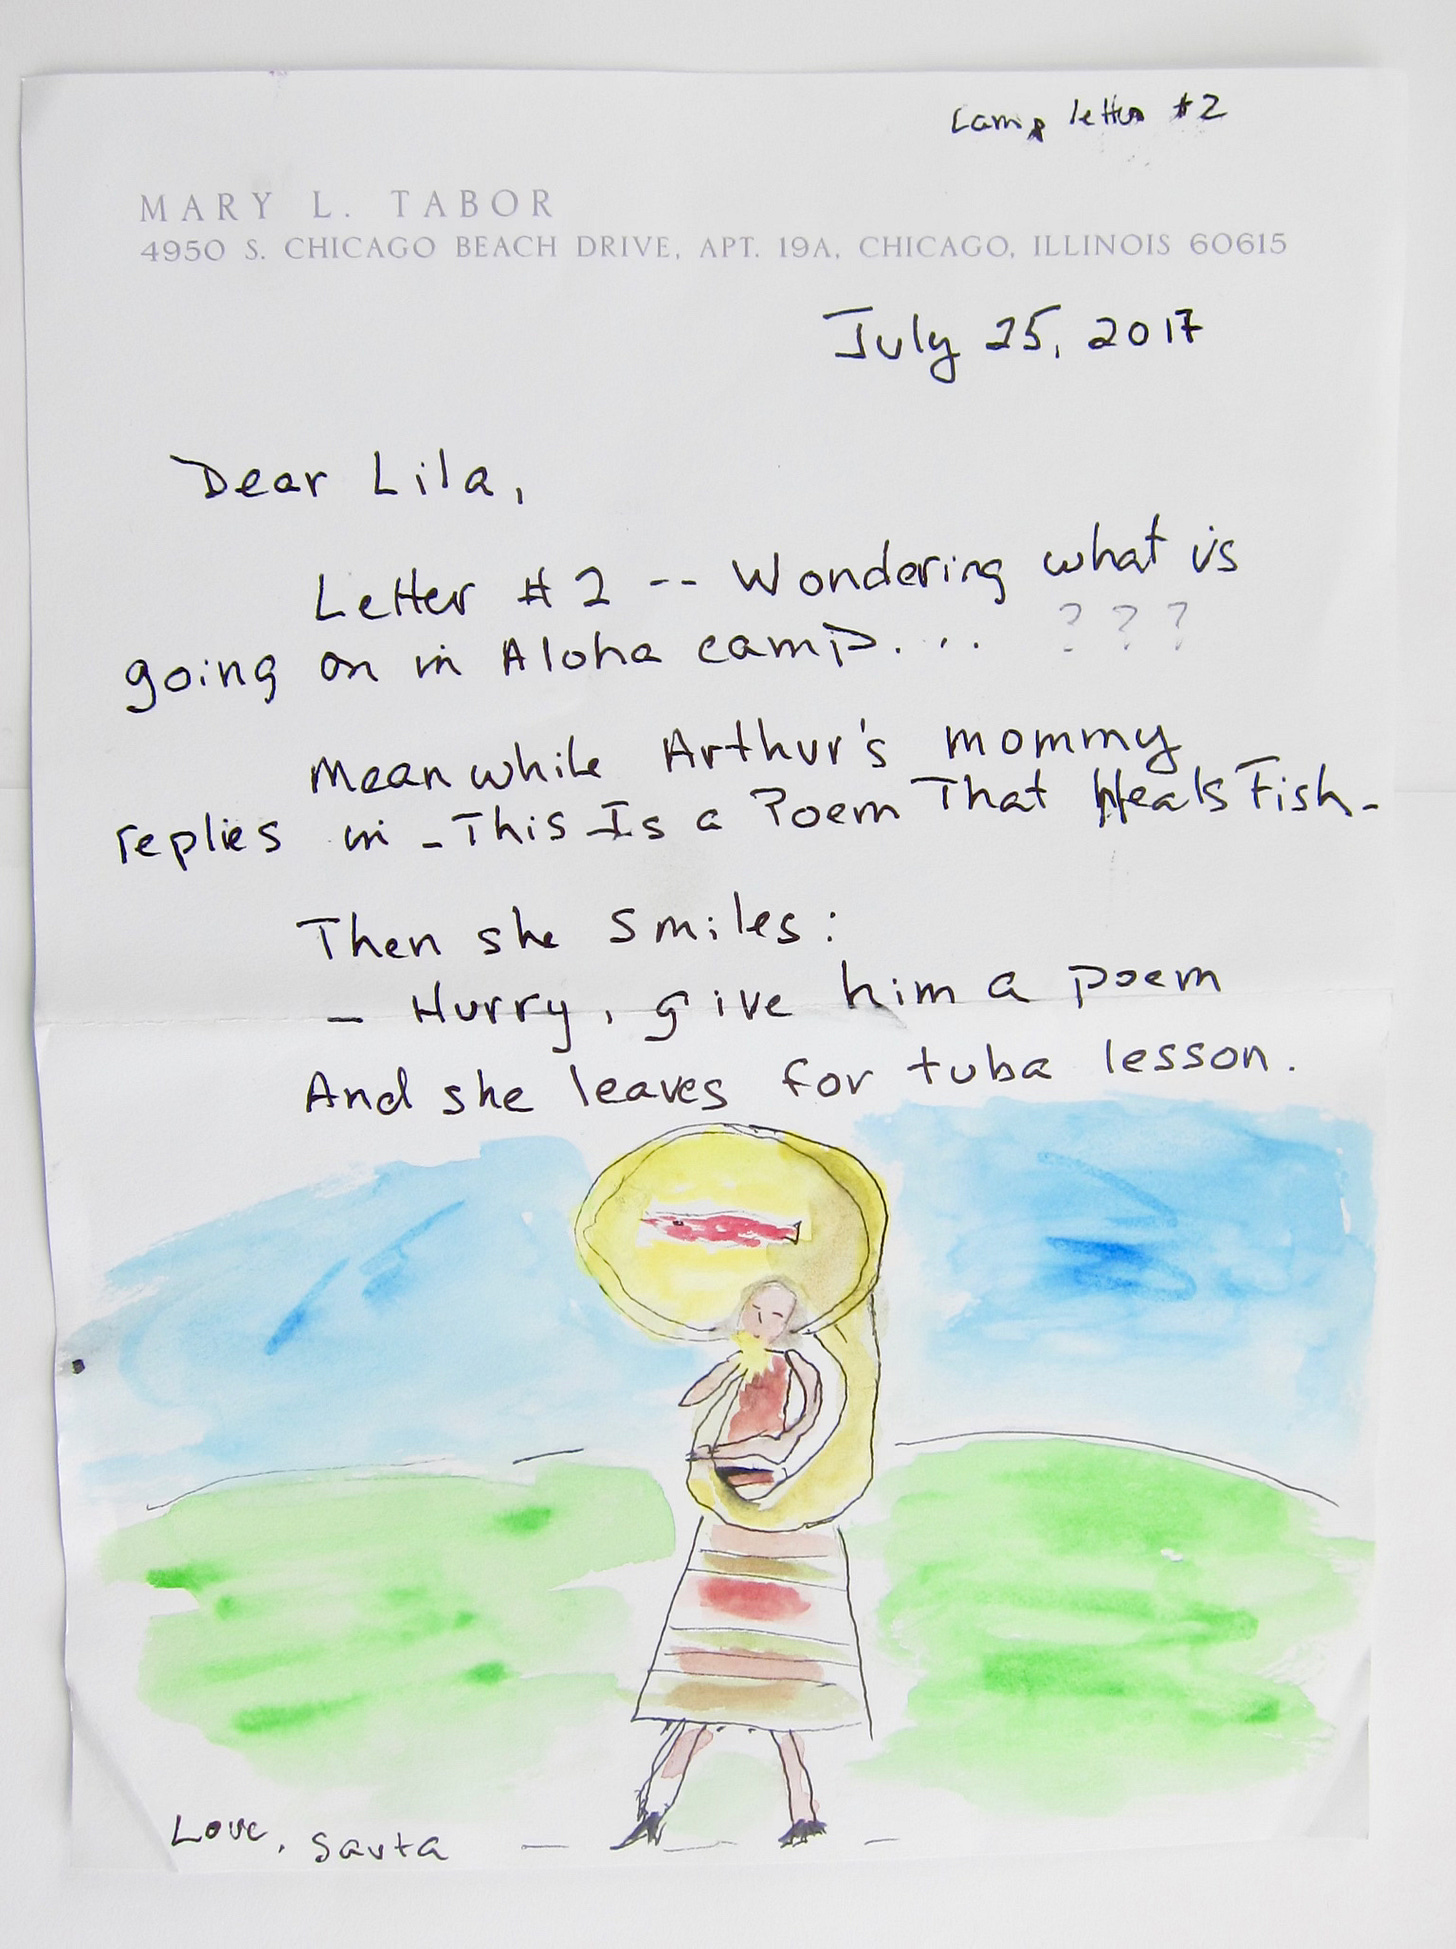 Camp letter #2
MARY L. TABOR
4950 S. CHICAGO BEACH DRIVE, APT. 19A, CHICAGO, ILLINOIS 60615
July 25, 2017
Dear Lila,
Letter #2 -- Wondering what is
going on in Aloha camp.... ???
Meanwhile Arthur's mommy
replies in _This Is a Poem That Heals Fish_
Then she smiles:
– Hurry, give him a poem
And she leaves for tuba lesson.
Love, Savta